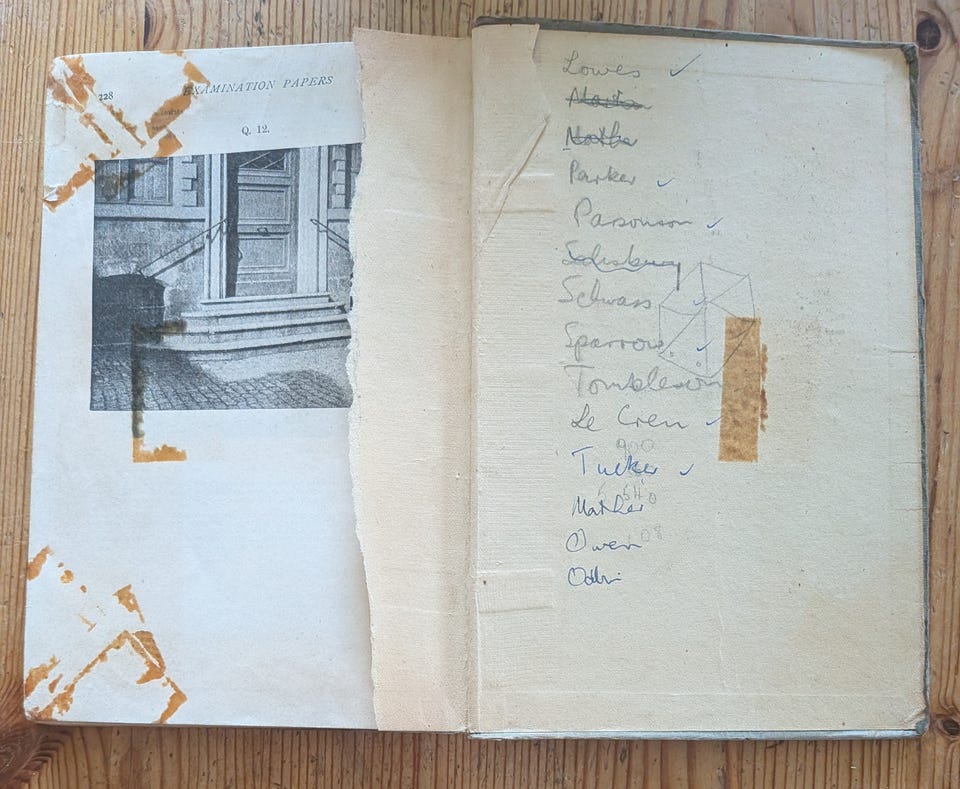 228
EXAMINATION PAPERS
Q. 12.
Lowes ✓
Martin
Mather
Parker ✓
Parsonson ✓
Salisbury
Schwass ✓
Sparrow ✓
Tombleson
Le Cren ✓
900
Tucker ✓
Mather
Owen